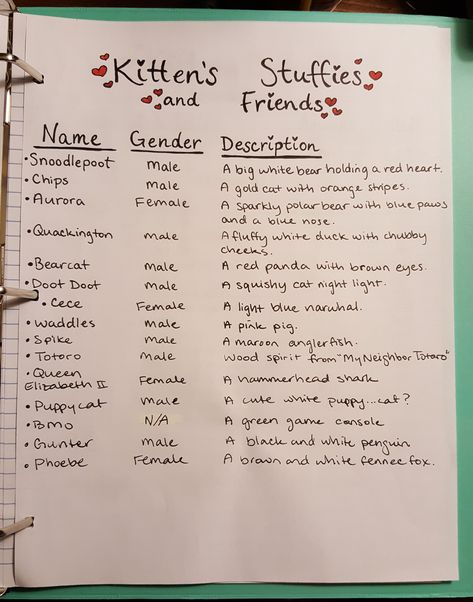 Kitten's Stuffies
and Friends
Name Gender Description
• Snoodlepoot Male A big white bear holding a red heart.
• Chips Male A gold cat with orange stripes.
• Aurora Female A sparkly polar bear with blue paws
and a blue nose.
• Quackington Male A fluffy white duck with chubby
cheeks.
• Bearcat Male A red panda with brown eyes.
• Doot Doot Male A squishy cat night light.
• Cece Female A light blue narwhal.
• Waddles Male A pink pig.
• Spike Male A maroon anglerfish.
• Totoro Male Wood spirit from "My Neighbor Totoro"
• Queen
Elizabeth II Female A hammerhead shark
• Puppycat Male A cute white puppy...cat?
• Bmo N/A A green game console
• Gunter Male A black and white penguin
• Phoebe Female A brown and white fennec fox.